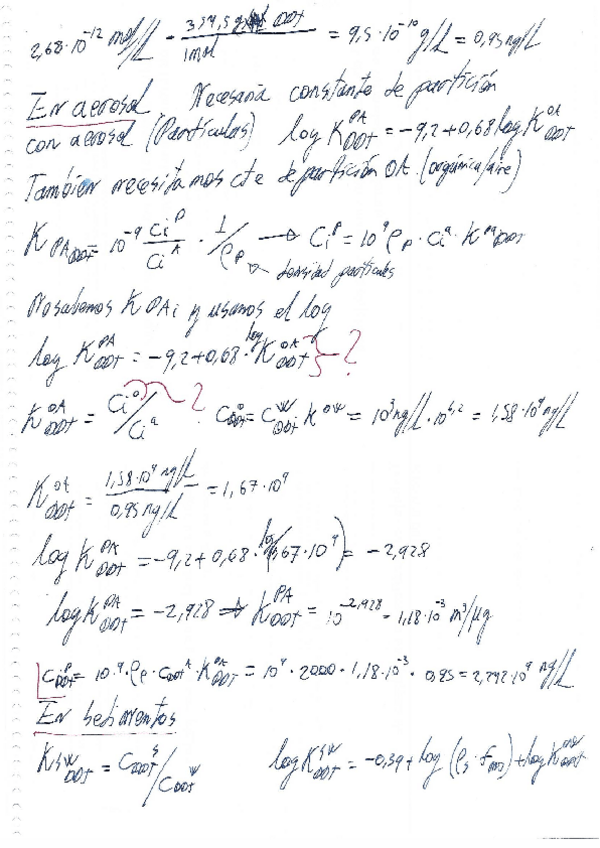 2,68·10^-12 mol/L · 354,5 g DDT / 1 mol = 9,5·10^-10 g/L = 0,95 ng/L
En aerosol Necesaria constante de partición
con aerosol (Partículas) log K_DDT^PA = -9,2+0,68 log K_DDT^OA
También necesitamos cte de partición OA (orgánica/aire)
K_PA DDT = 10^-9 Ci^P/Ci^A · 1/ρp → Ci^P = 10^9 ρp · Ci^a · K^PA DDT
densidad partículas
No sabemos K PAi y usamos el log
log K_DDT^PA = -9,2+0,68 · log K_DDT^OA ?
K_DDT^OA = Ci^o/Ci^a ? C_DDT^o = C_DDT^W K^OW = 10^3 ng/L · 10^6,2 = 1,58·10^9 ng/L
K_DDT^OA = 1,58·10^9 ng/L / 0,95 ng/L = 1,67·10^9
log K_DDT^PA = -9,2+0,68 · log(1,67·10^9) = -2,928
log K_DDT^PA = -2,928 ⇒ K_DDT^PA = 10^-2,928 = 1,18·10^-3 m³/μg
C_DDT^P = 10^9 · ρp · C_DDT^A · K_DDT^PA = 10^9 · 2000 · 1,18·10^-3 · 0,95 = 2,242·10^9 ng/L
En sedimentos
K_DDT^SW = C_DDT^S / C_DDT^W log K_DDT^SW = -0,39 + log (ρs · fmo) + log K_DDT^OW